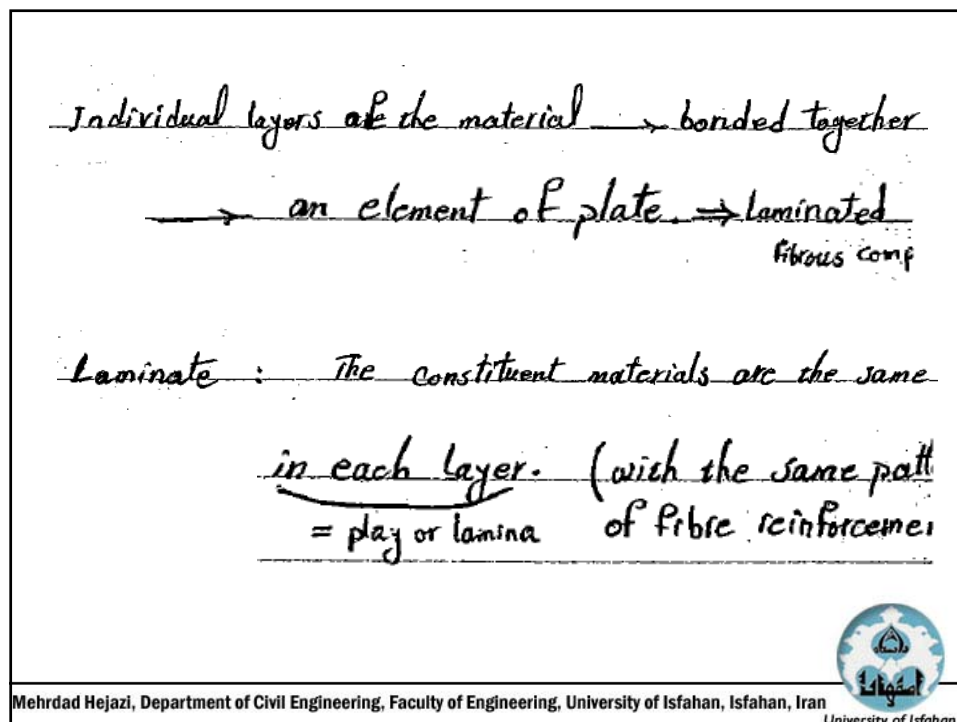 Individual layers of the material → bonded together
→ an element of plate. ⇒ Laminated
fibrous comp
Laminate : The constituent materials are the same
in each layer. (with the same patt
= play or lamina of fibre reinforcemen
Mehrdad Hejazi, Department of Civil Engineering, Faculty of Engineering, University of Isfahan, Isfahan, Iran
University of Isfahan